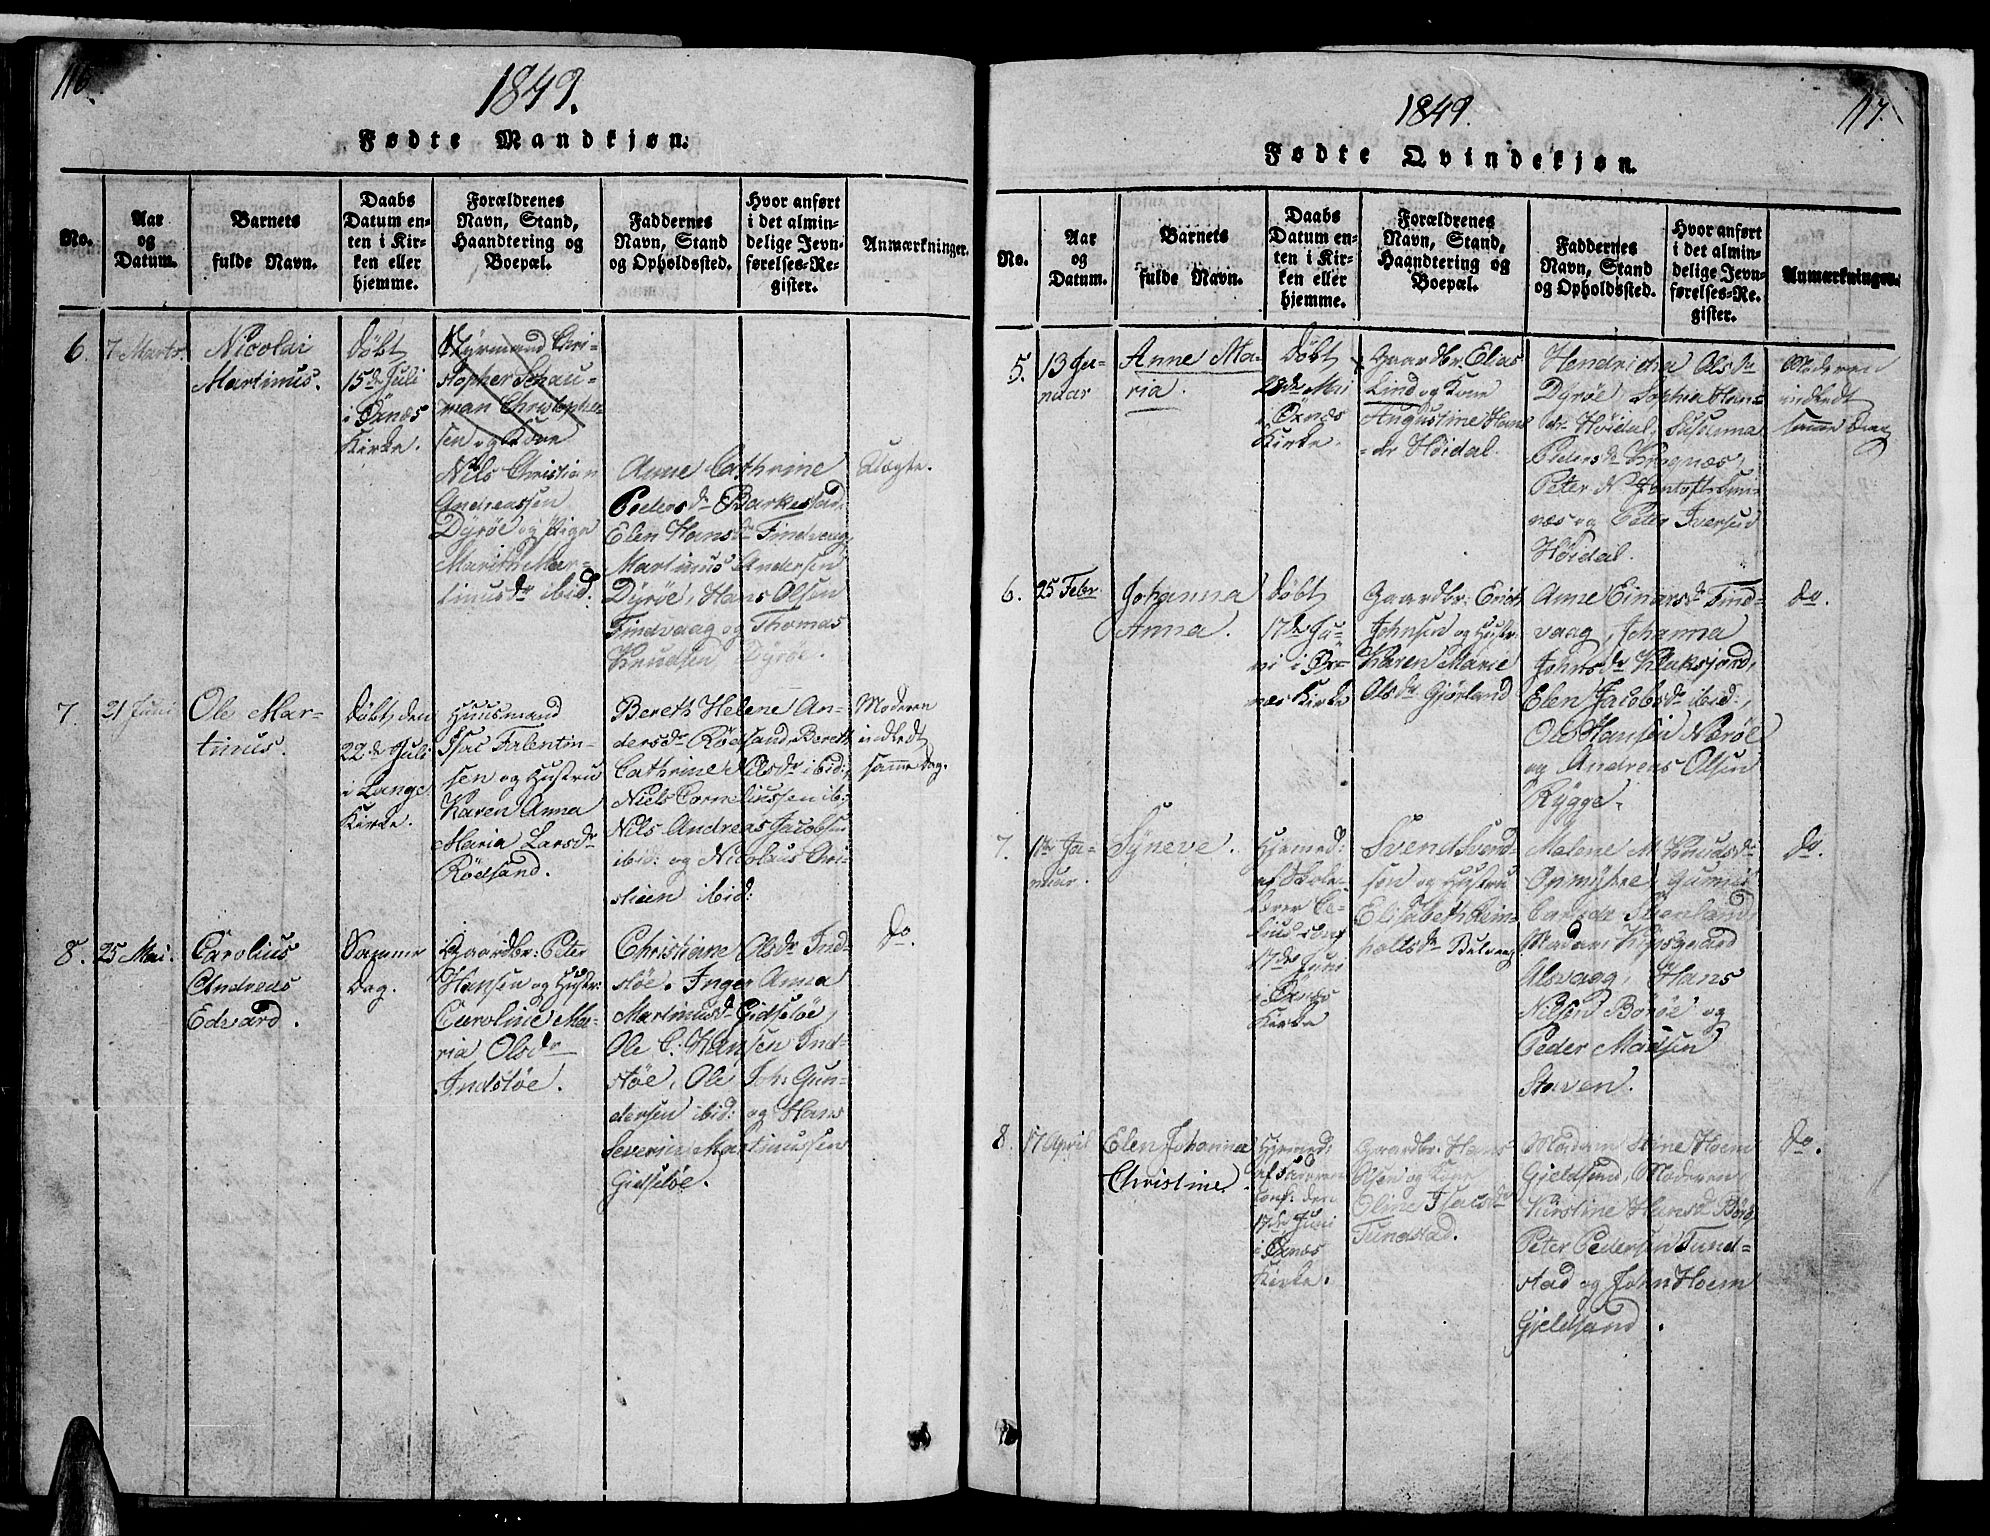 116.
1849.
Fødte Mandkjøn:
No.
Aar
og
Datum.
Barnets
fulde Navn.
Daabs
Datum en-
ten i Kir-
ken eller
hjemme.
Forældrenes
Navn, Stand,
Haandtering og
Boepæl.
Faddernes
Navn, Stand
og Opholdssted.
Hvor anført
i det almin-
delige Jevn-
førelses-Re-
gister.
Anmærkninger.
6.
7 Marts.
Nicolai
Martinus.
Døbt
15de Juli
i Öxnæs
Kirke.
Styrmand Chri-
stopher Schau-
man Christopher-
sen og Kone
Nils Christian
Andreassen
Dyröe og Pige
Marith Mar-
tinusdr ibid.
Anne Cathrine
Pedersdr Barkestad.
Elen Hansdr Findvaag,
Martinus Andersen
Dyröe, Hans Olsen
Findvaag og Thomas
Knudsen Dyröe.
Uægte.
7.
21 Juni
Ole Mar-
tinus.
Døbt den
22de Juli
i Lange
Kirke.
Huusmand
Isac Falentin-
sen og Hustru
Karen Anna
Maria Larsdr
Rödsand.
Bereth Helene An-
dersdr Rödsand, Bereth
Cathrine Nilsdr ibid:,
Niels Corneliussen ib:
Nils Andreas Jacobsen
ibid: og Nicolaus Chri-
stien ibid:
Moderen
indledt
samme Dag.
8.
25 Mai.
Carolius
Andreas
Edvard.
Samme
Dag.
Gaardbr: Peter
Hansen og Hustr:
Caroline Ma-
ria Olsdr
Indstöe.
Christiane Olsdr Ind-
stöe. Inger Anna
Martinusdr Gidstöe,
Ole C. Hansen Ind-
stöe, Ole Joh: Gun-
dersen ibid: og Hans
Severin Martinussen
Gidstöe.
do.
117.
1849.
Fødte Qvindekjøn.
No.
Aar
og
Datum.
Barnets
fulde Navn.
Daabs
Datum en-
ten i Kir-
ken eller
hjemme.
Forældrenes
Navn, Stand,
Haandtering og
Boepæl.
Faddernes
Navn, Stand
og Opholdssted.
Hvor anført
i det almin-
delige Jevn-
førelses-Re-
gister.
Anmærkninger.
5.
13 Ja-
nuar
Anne Ma-
ria.
Døbt
28de Mai
i Öxnæs
Kirke.
Gaardbr: Elias
Lind og Kone
Augustine Hans
dr Höidal.
Hendricha Olsdr
Dyröe, Sophia Han-
dr Höidal, Susanna
Pedersdr Kragnæs,
Peter N Jentoft
næs og Peter Iversen
Höidal.
Moderen
indledt
samme Dag
6.
25 Febr
Johanna
Anna.
Døbt
17de Ju-
ni i Öx-
næs Kirke
Gaardbr: Erich
Johnsen og Hustr:
Karen Marie
Olsdr Gjörland
Anne Einarsdr Find-
vaag, Johanna
Johnsdr Klaksjord,
Elen Jacobsdr ibid:,
Ole Hansen Neröe
og Andreas Olsen
Rygge.
do.
7.
Ja-
nuar.
Syneve.
Hjemmed:
af Skole-
lærer
17de Juni
i Öxnæs
Kirke
Svend Svend-
sön og Hustru
Elisabeth Reim-
holtsdr
Malene M Knudsdr
Madam
Alsvaag, Hans
Nilsen Böröe og
Peder Madsen
Staven.
do.
8.
17 April
Elen Johanna
Christine.
Hjemmed:
af Faderen
Conf: den
17de Juni
i Öxnæs
Kirke.
Gaardbr. Hans
Olsen og Kone
Oline Isacsdr
Tundstad.
Madam Stine Hoem
Gjeldsund, Moderen
Kirstine Hansdr
Peter Pedersen Tund-
stad og John Hoem
Gjeldsund.
do.